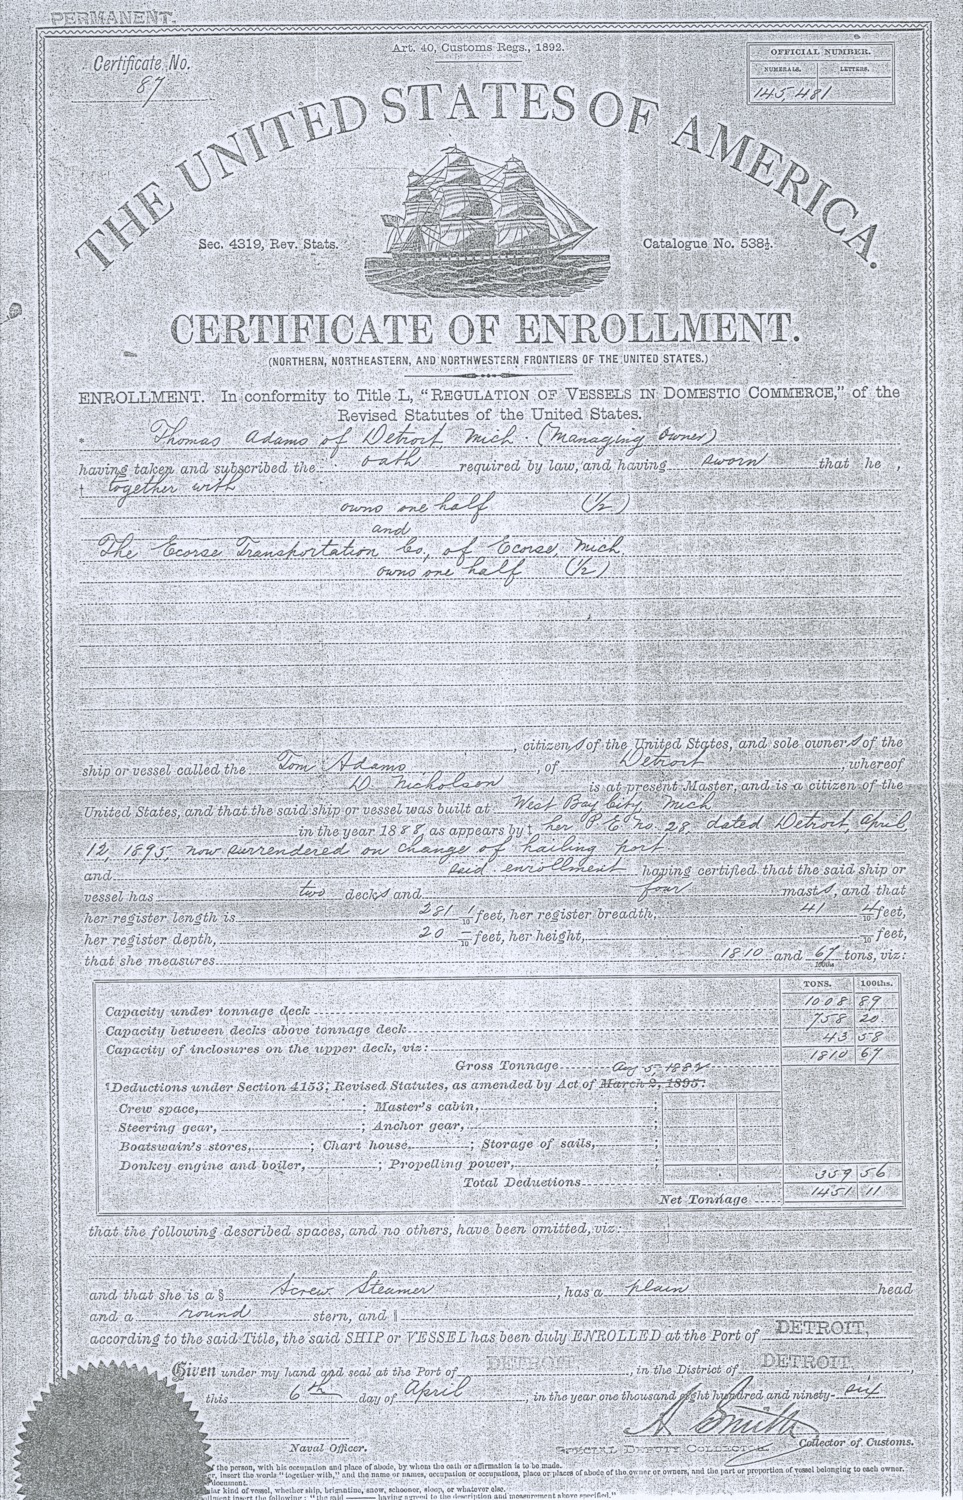 PERMANENT.
Art. 40, Customs Regs., 1892.
Certificate No.
87
OFFICIAL NUMBER.
NUMERALS. LETTERS.
145,481
THE UNITED STATES OF AMERICA.
Sec. 4319, Rev. Stats.
Catalogue No. 538½.
CERTIFICATE OF ENROLLMENT.
(NORTHERN, NORTHEASTERN, AND NORTHWESTERN FRONTIERS OF THE UNITED STATES.)
ENROLLMENT. In conformity to Title L, "REGULATION OF VESSELS IN DOMESTIC COMMERCE," of the
Revised Statutes of the United States.
* Thomas Adams of Detroit, Mich. (Managing Owner)
having taken and subscribed the oath required by law, and having sworn that he,
† together with
owns one half (1/2)
and
The Ecorse Transportation Co., of Ecorse, Mich
owns one half (1/2)
, citizens of the United States, and sole owners of the
ship or vessel called the Tom Adams, of Detroit, whereof
D. Nicholson is at present Master, and is a citizen of the
United States, and that the said ship or vessel was built at West Bay City, Mich
in the year 1888, as appears by‡ her P. E. No. 28, dated Detroit, April,
12, 1895, now surrendered on change of hailing port
and said enrollment having certified that the said ship or
vessel has two decks and four masts, and that
her register length is 281 1/10 feet, her register breadth, 41 4/10 feet,
her register depth, 20 –/10 feet, her height, /10 feet,
that she measures 1810 and 67/100ths tons, viz:
TONS. 100ths.
Capacity under tonnage deck 1008 89
Capacity between decks above tonnage deck 758 20
Capacity of inclosures on the upper deck, viz: 43 58
Gross Tonnage 1810 67
Aug 5, 1882
¶Deductions under Section 4153, Revised Statutes, as amended by Act of March 2, 1895:
Crew space, ; Master's cabin, ;
Steering gear, ; Anchor gear, ;
Boatswain's stores, ; Chart house, ; Storage of sails, ;
Donkey engine and boiler, ; Propelling power,
Total Deductions 359 56
Net Tonnage 1451 11
that the following described spaces, and no others, have been omitted, viz:
and that she is a § Screw Steamer, has a plain head
and a round stern, and ‖
according to the said Title, the said SHIP or VESSEL has been duly ENROLLED at the Port of DETROIT,
Given under my hand and seal at the Port of DETROIT, in the District of DETROIT,
this 6th day of April, in the year one thousand eight hundred and ninety-six
A Smith
Naval Officer.
SPECIAL DEPUTY COLLECTOR
Collector of Customs.
of the person, with his occupation and place of abode, by whom the oath or affirmation is to be made.
r, insert the words "together with," and the name or names, occupation or occupations, place or places of abode of the owner or owners, and the part or proportion of vessel belonging to each owner.
document.
ular kind of vessel, whether ship, brigantine, snow, schooner, sloop, or whatever else.
llment insert the following: "the said —— having agreed to the description and measurement above specified."